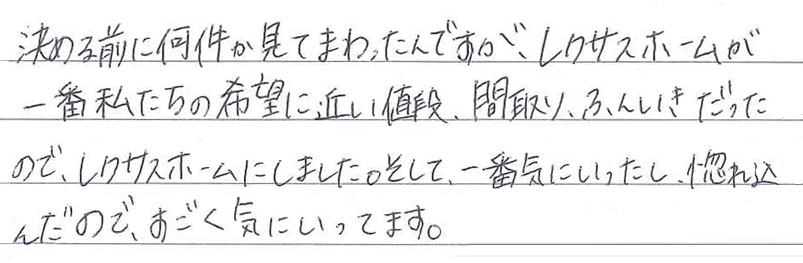 決める前に何件か見てまわったんですが、レクサスホームが
一番私たちの希望に近い値段、間取り、ふんいきだった
ので、レクサスホームにしました。そして、一番気にいったし、惚れ込
んだので、すごく気にいってます。